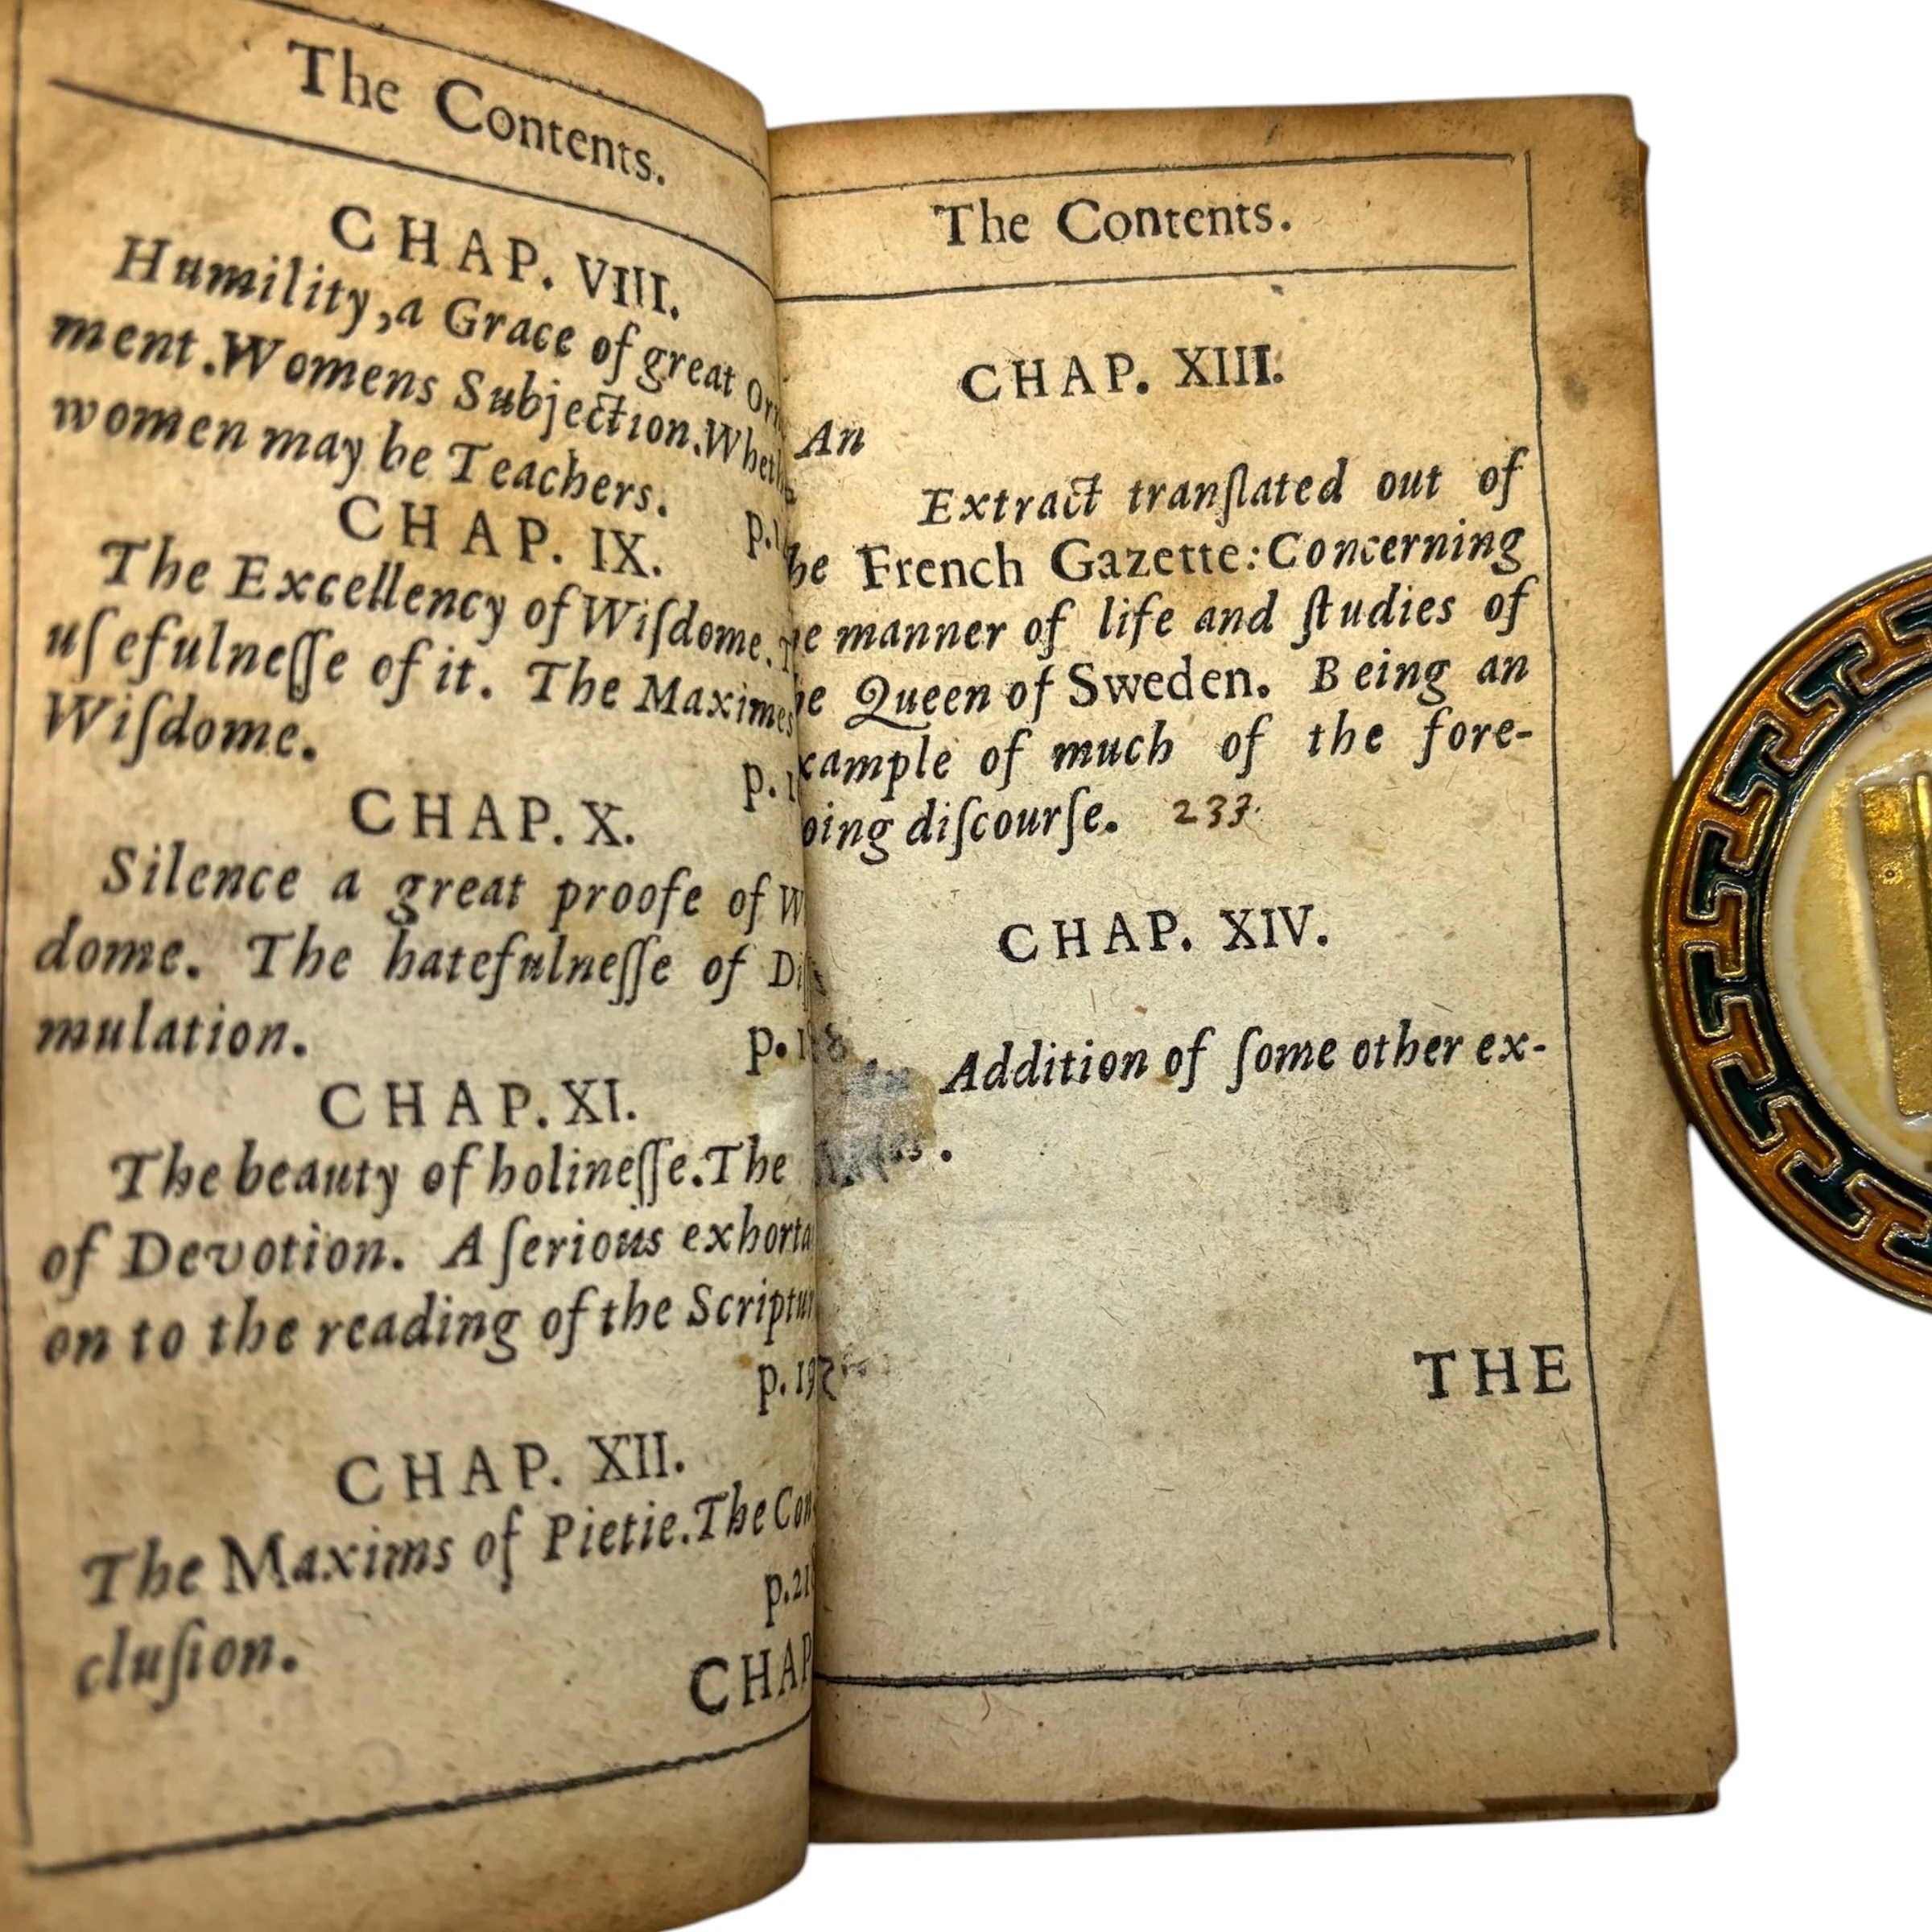 The Contents.
CHAP. VIII.
Humility,a Grace of great
ment.Womens Subjection.
women may be Teachers.
CHAP. IX.
The Excellency of Wiſdome.
uſefulneſſe of it. The Maximes
Wiſdome.
CHAP. X.
Silence a great proofe of
dome. The hatefulneſſe of
mulation.
CHAP. XI.
The beauty of holineſſe.The
of Devotion. A ſerious
on to the reading of the
CHAP. XII.
The Maxims of Pietie.The
cluſion.
CHAP
The Contents.
CHAP. XIII.
An
Extract tranſlated out of
French Gazette:Concerning
manner of life and ſtudies of
Queen of Sweden. Being an
of much of the fore-
diſcourſe. 233.
CHAP. XIV.
Addition of ſome other ex-
THE